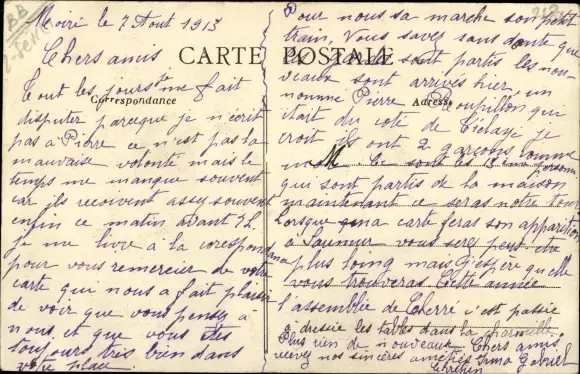 Moiré le 7 Aout 1913
Chers amis
Tout les jours me fait
disputer parceque je n'écrit
pas a Pierre ce n'est pas la
mauvaise volonté mais le
temps me manque souvent
car ils recoivent assez souvent
enfin ce matin avant
je me livre à la corespondance
pour vous remercier de votre
carte qui nous a fait plaisir
de voir que vous pensez a
nous et que vous êtes
toujours très bien dans
votre place
CARTE POSTALE
Correspondance
Adresse
Pour nous sa marche son petit
train, Vous savez sans doute que
sont partis les nou-
veaux sont arrivés hier, un
nommé Pierre Poupillon qui
était du coté de je
croit ils ont 2 garçons comme
Ce sont les 13 ème
qui sont partis de la maison
maintenant ce seras notre tour
Lorsque ma carte feras son apparition
à Saumur vous serez peut être
plus loing mais J'espère qu'elle
vous trouveras Cette année
l'assemblée de Cherré s'est passée
a dressée les tables dans la charmille
Plus rien de nouveaux Chers amis
recevez nos sincères amitiés Irma Gabriel
Chrétien